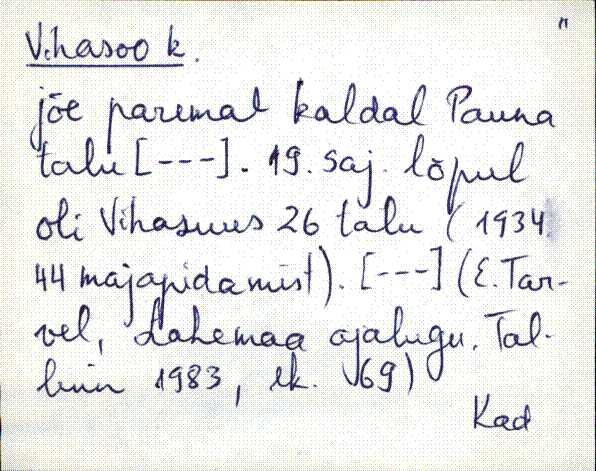 "
Vihasoo k.
jõe paremal kaldal Pauna
talu [---]. 19. saj. lõpul
oli Vihasuus 26 talu (1934
44 majapidamist). [---] (E. Tar-
vel, Lahemaa ajalugu. Tal-
linn 1983, lk. 69)
Kad